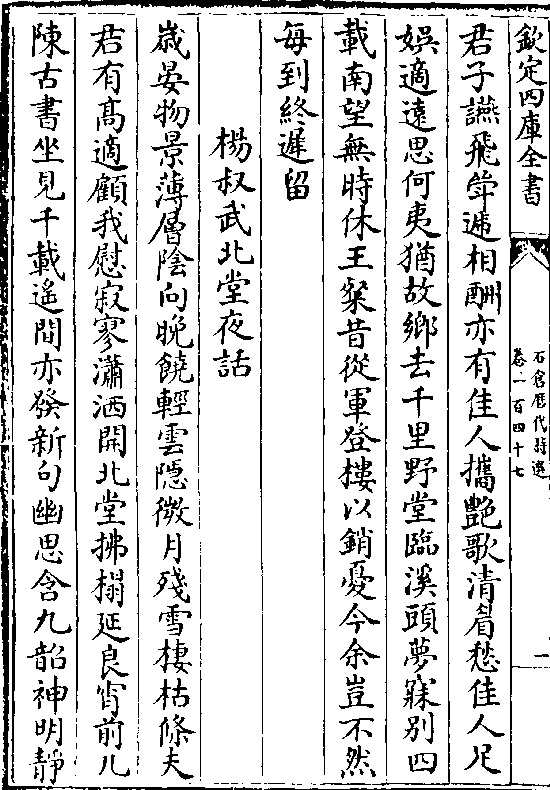 欽定四庫全書
石倉歷代詩選
卷一百四十七
一
君子讌飛斝遞相酬亦有佳人攜艷歌清眉愁佳人尺
娛適遠思何夷猶故鄉去千里野堂臨溪頭夢寐別四
載南望無時休王粲昔從軍登樓以銷憂今余豈不然
每到終遲留
楊叔武北堂夜話
歲晏物景薄層陰向晚饒輕雲隱微月殘雪棲枯條夫
君有高適顧我慰寂寥瀟洒開北堂拂榻延良宵前几
陳古書坐見千載遙間亦發新句幽思含九韶神明靜